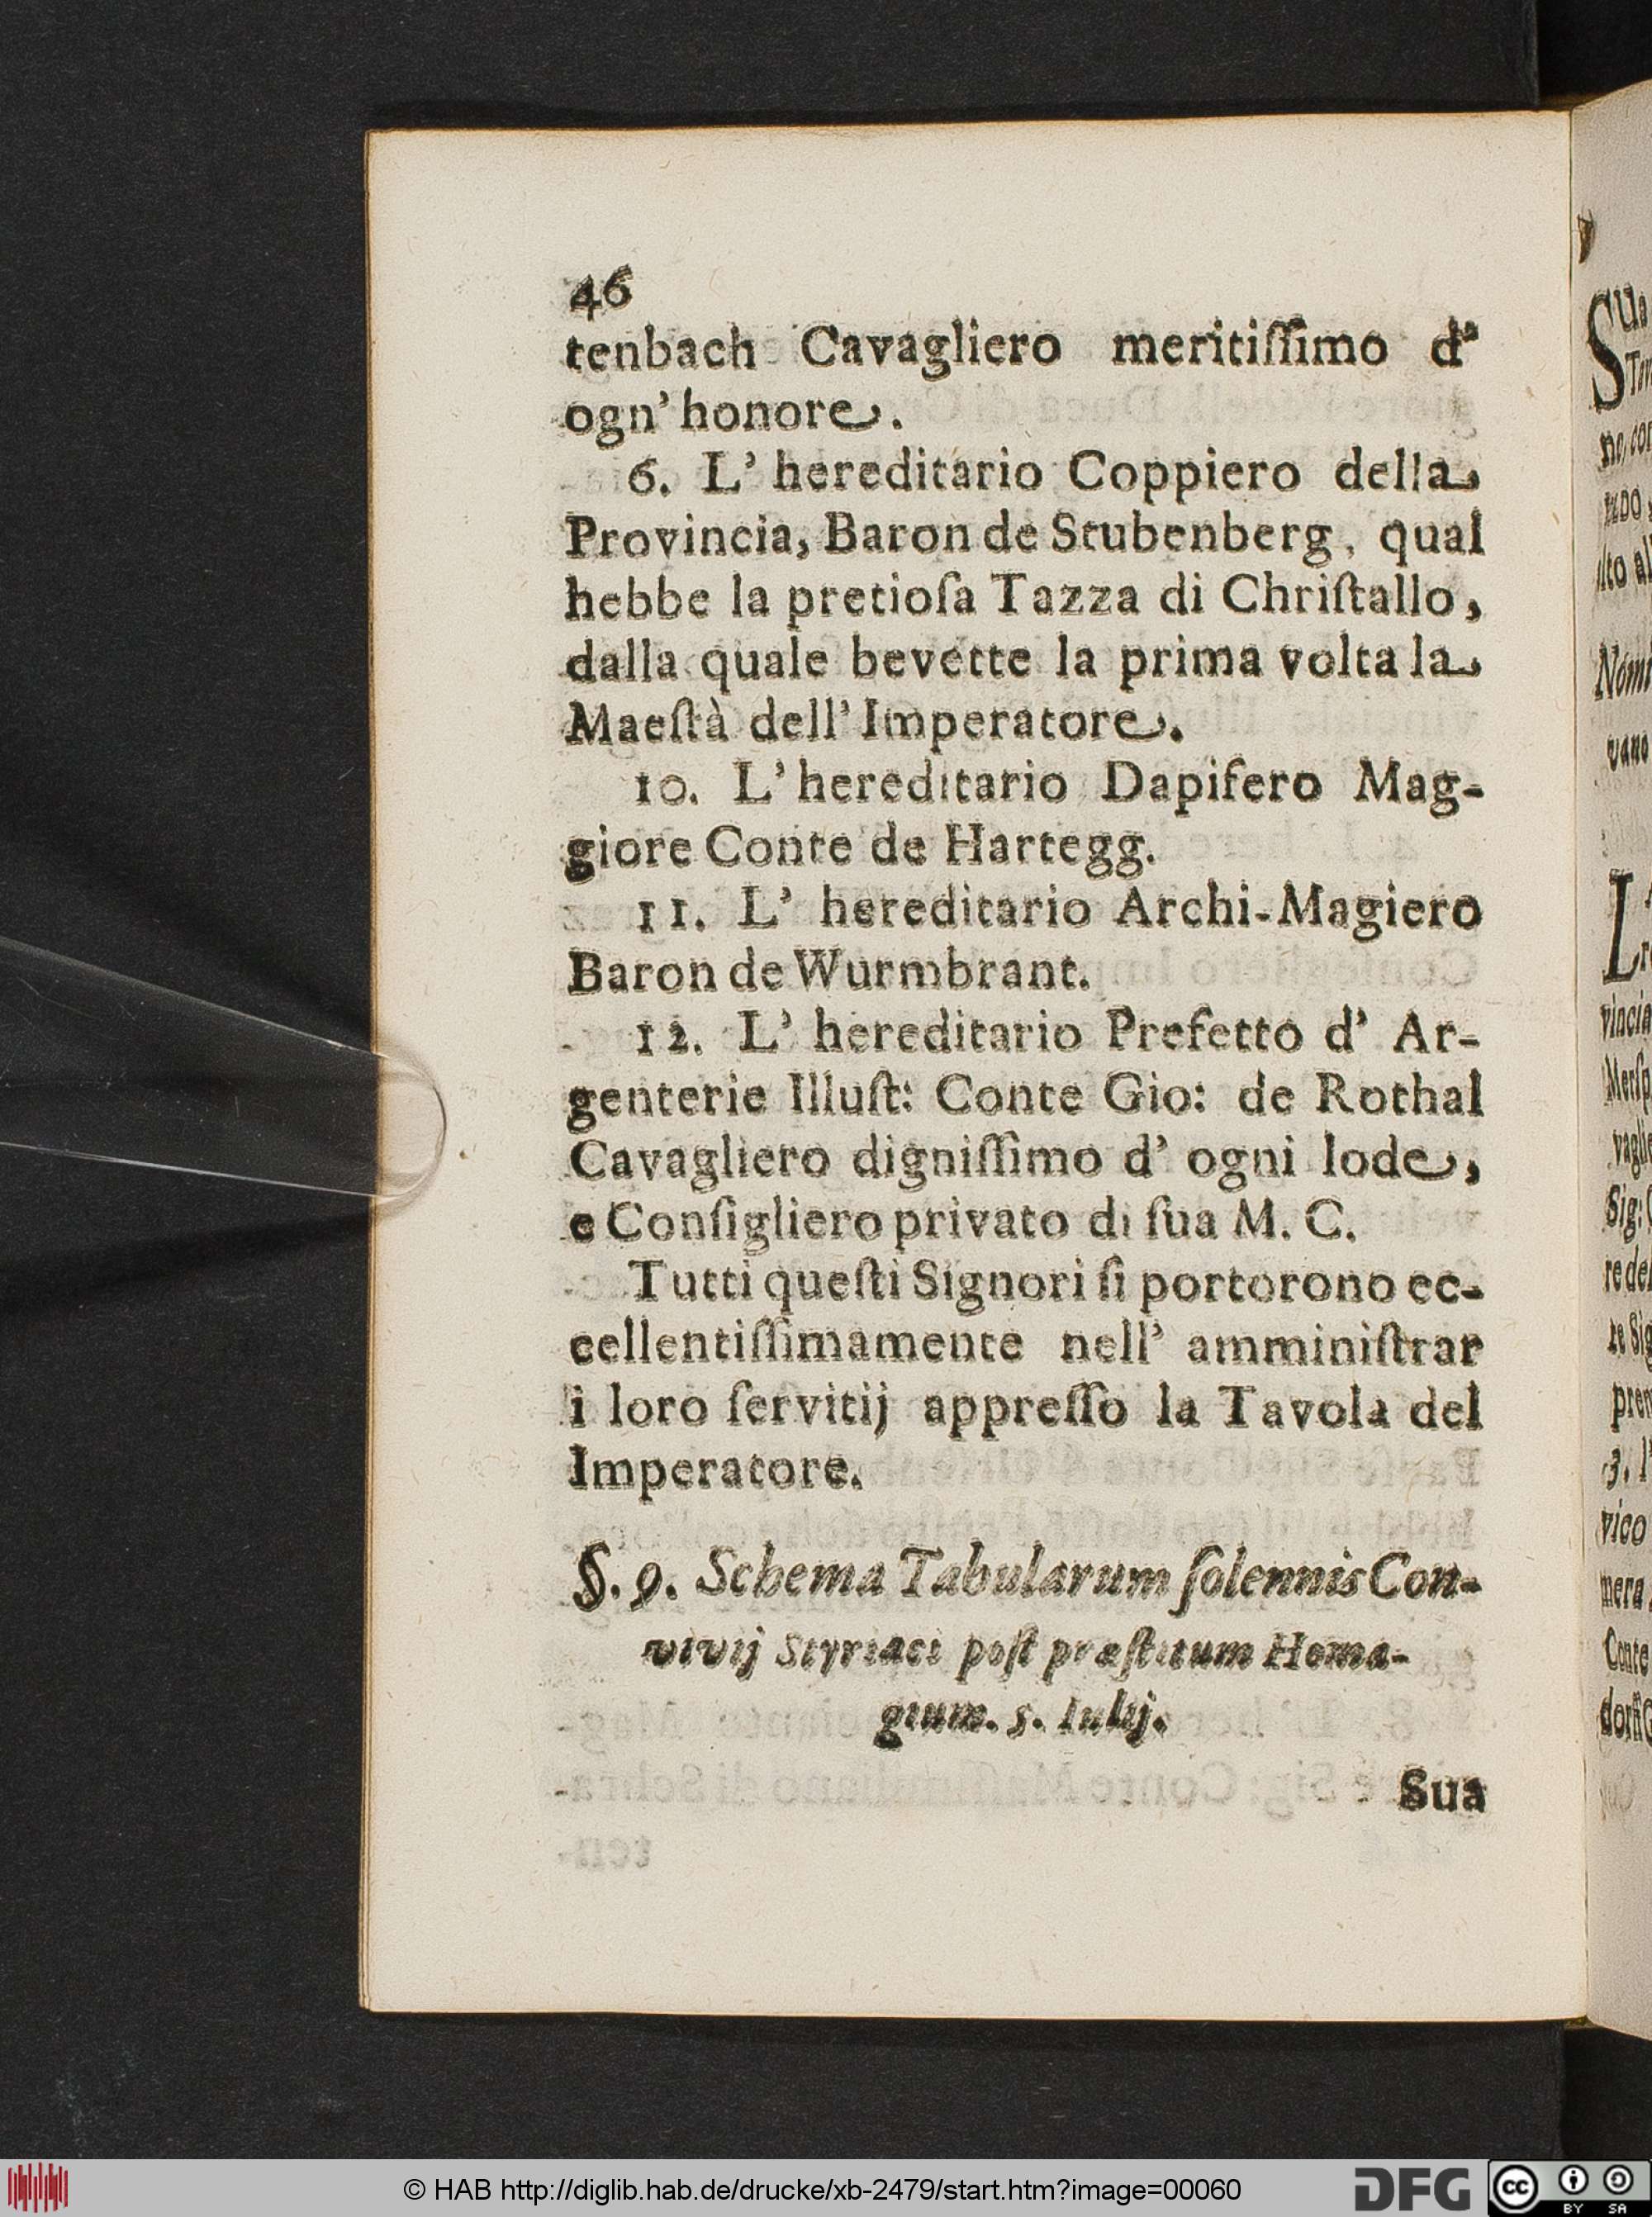 46
tenbach Cavagliero meritiſſimo d'
ogn' honore.
6. L' hereditario Coppiero della
Provincia, Baron de Stubenberg, qual
hebbe la pretioſa Tazza di Chriſtallo,
dalla quale bevette la prima volta la
Maeſtà dell' Imperatore.
10. L' hereditario Dapifero Mag-
giore Conte de Hartegg.
11. L' hereditario Archi-Magiero
Baron de Wurmbrant.
12. L' hereditario Prefetto d' Ar-
genterie Illuſt: Conte Gio: de Rothal
Cavagliero digniſſimo d' ogni lode,
e Conſigliero privato di ſua M. C.
Tutti queſti Signori ſi portorono ec-
cellentiſſimamente nell' amminiſtrar
i loro ſervitij appreſſo la Tavola del
Imperatore.
§. 9. Schema Tabularum ſolennis Con-
vivij Styriaci poſt præſtitum Homa-
gium. 5. Iulij.
Sua
© HAB http://diglib.hab.de/drucke/xb-2479/start.htm?image=00060
DFG
cc
BY SA